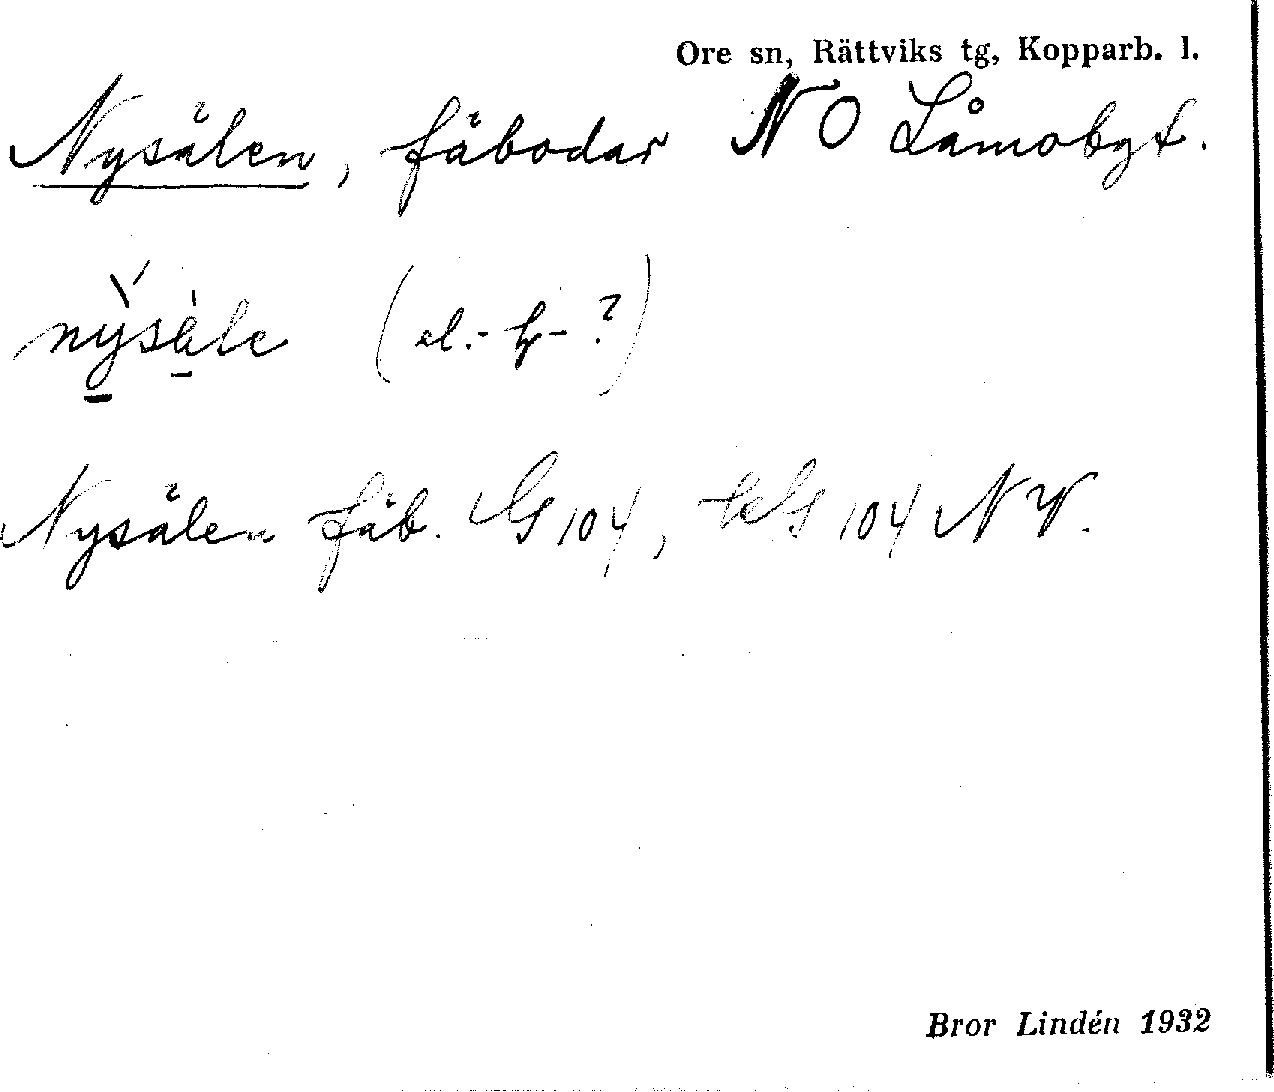 Ore sn, Rättviks tg, Kopparb. l.
Nysälen, fäbodar NO Låmobygt.
nysäle (el. - ?)
Nysälen fäb. G 104, 104 NV.
Bror Lindén 1932